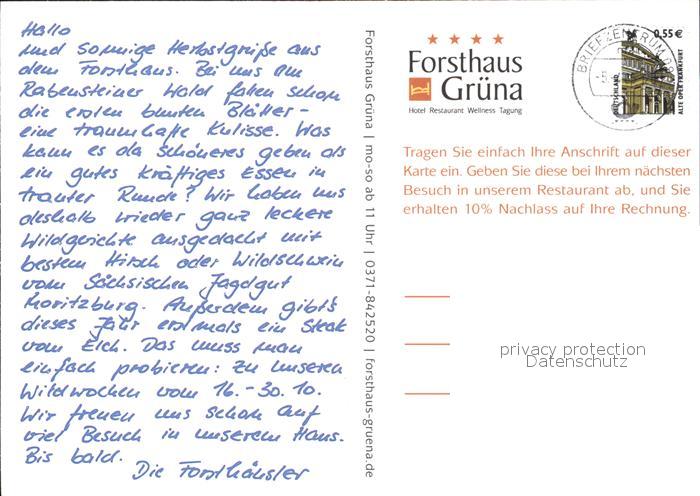 Hallo
und sonnige Herbstgrüße aus
dem Forsthaus. Bei uns am
Rabensteiner Wald fallen schon
die ersten bunten Blätter -
eine traumhafte Kulisse. Was
kann es da schöneres geben als
ein gutes kräftiges Essen in
trauter Runde? Wir haben uns
deshalb wieder ganz leckere
Wildgerichte ausgedacht mit
bestem Hirsch oder Wildschwein
vom Sächsischen Jagdgut
Moritzburg. Außerdem gibt's
dieses Jahr erstmals ein Steak
vom Elch. Das muss man
einfach probieren: zu unseren
Wildwochen vom 16. - 30. 10.
Wir freuen uns schon auf
viel Besuch in unserem Haus.
Bis bald.
Die Forsthäusler
Forsthaus Grüna | mo-so ab 11 Uhr | 0371-842520 | forsthaus-gruena.de
Forsthaus
Grüna
Hotel Restaurant Wellness Tagung
BRIEFZENTRUM
0,55 €
DEUTSCHLAND
ALTE OPER FRANKFURT
Tragen Sie einfach Ihre Anschrift auf dieser
Karte ein. Geben Sie diese bei Ihrem nächsten
Besuch in unserem Restaurant ab, und Sie
erhalten 10% Nachlass auf Ihre Rechnung.
privacy protection
Datenschutz